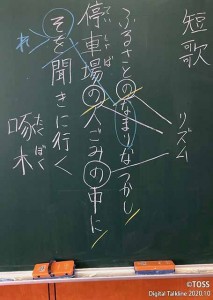 短歌
リズム
ふるさとのなまりなつかし
停車場の人ごみの中に
ていしゃば
そを聞きに行く
それ
啄木
たくぼく
©TOSS
Digital Talkline 2020.10